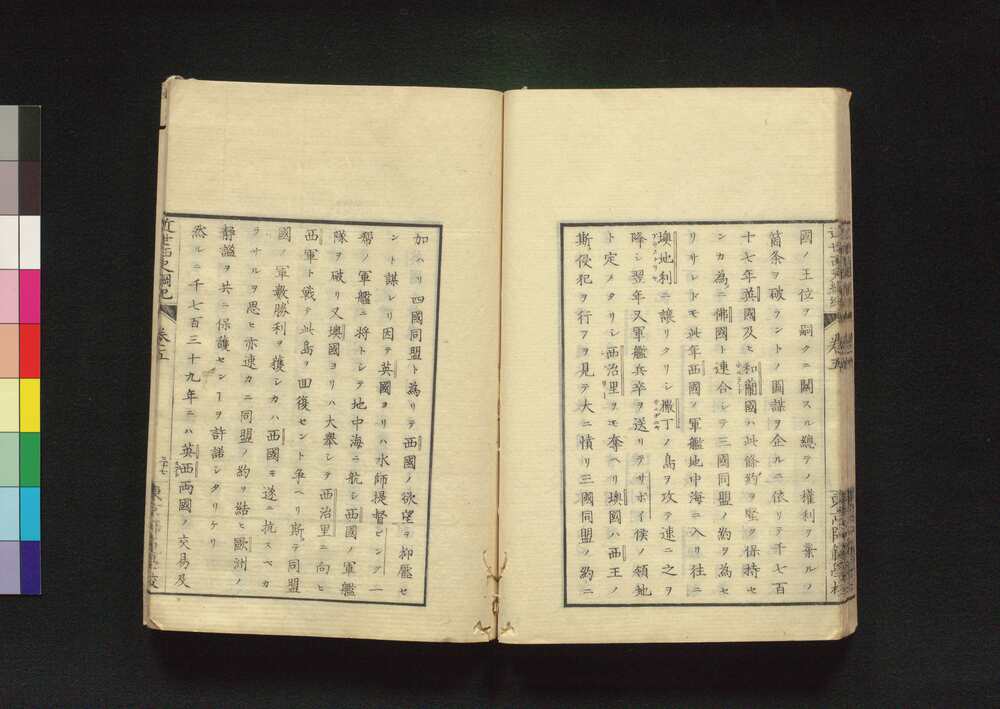 國ノ王位ヲ嗣クニ關スル總テノ權利ヲ棄ルノ
箇条ヲ破ラントノ圖謀ヲ企ルニ依リテ千七百
十七年英國及ヒ和蘭國ハ此條約ヲ堅ク保持セ
ンカ為ニ佛國ト連合シテ三國同盟ノ約ヲ為セ
リサレドモ此年西國ノ軍艦地中海ニ入リ往ニ
墺地利ニ讓リタリシ撒丁ノ島ヲ攻テ速ニ之ヲ
降シ翌年又軍艦兵卒ヲ送リテサボイ侯ノ領地
ト定メタリシ西治里ヲモ奪ヘリ墺國ハ西王ノ
斯侵犯ヲ行フヲ見テ大ニ憤リ三國同盟ノ約ニ
加ハリ四國同盟ト為リテ西國ノ欲望ヲ抑壓セ
ント謀レリ因テ英國ヨリハ水師提督ビングー
帮ノ軍艦ニ將トシテ地中海ニ航シ西國ノ軍艦
隊ヲ破リ又墺國ヨリハ大舉シテ西治里ニ向ヒ
西軍ト戰テ此島ヲ回復セント争ヘリ斯テ同盟
國ノ軍數勝利ヲ獲シカハ西國モ遂ニ抗スベカ
ラサルヲ思ヒ亦速カニ同盟ノ約ヲ結ヒ歐洲ノ
靜謐ヲ共ニ保護センヿヲ許諾シタリケリ
然ルニ千七百三十九年ニハ英西両國ノ交易及
近世西史綱紀 卷之五 二十七 東京師範學校